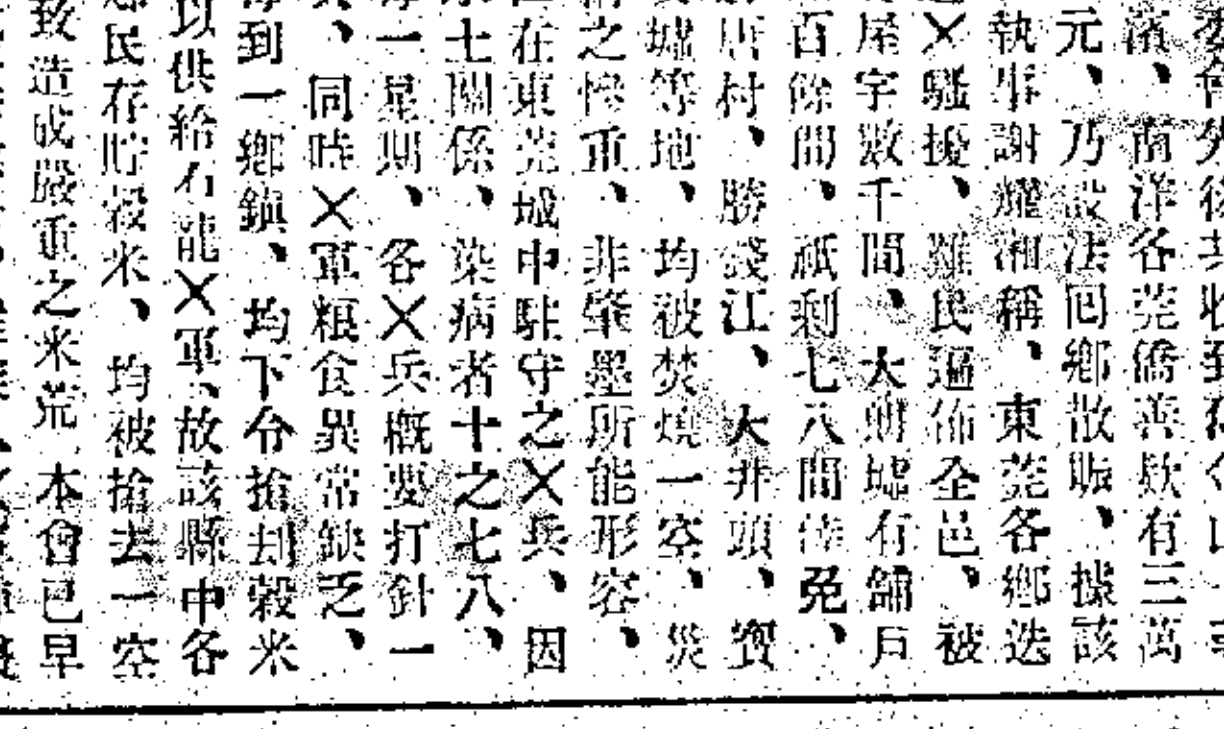 委會外後共收到
濱、南洋各莞僑善欵有三萬
元、乃設法囘鄉散賑、據該
執事謝耀湘稱、東莞各鄉迭
×騷擾、難民遍佈全邑、被
屋宇數千間、大朗墟有舖戶
百餘間、祇剩七八間倖免、
唐村、勝袋江、大井頭、寳
墟等地、均被焚燒一空、災
之慘重、非筆墨所能形容、
在東莞城中駐守之×兵、因
水土關係、染病者十之七八、
一星期、各×兵槪要打針一
、同時×軍粮食異常缺乏、
每到一鄉鎭、均下令搶刦穀米
以供給石龍×軍、故該縣中各
鄉民存貯穀米、均被搶去一空
致造成嚴重之米荒、本會已早